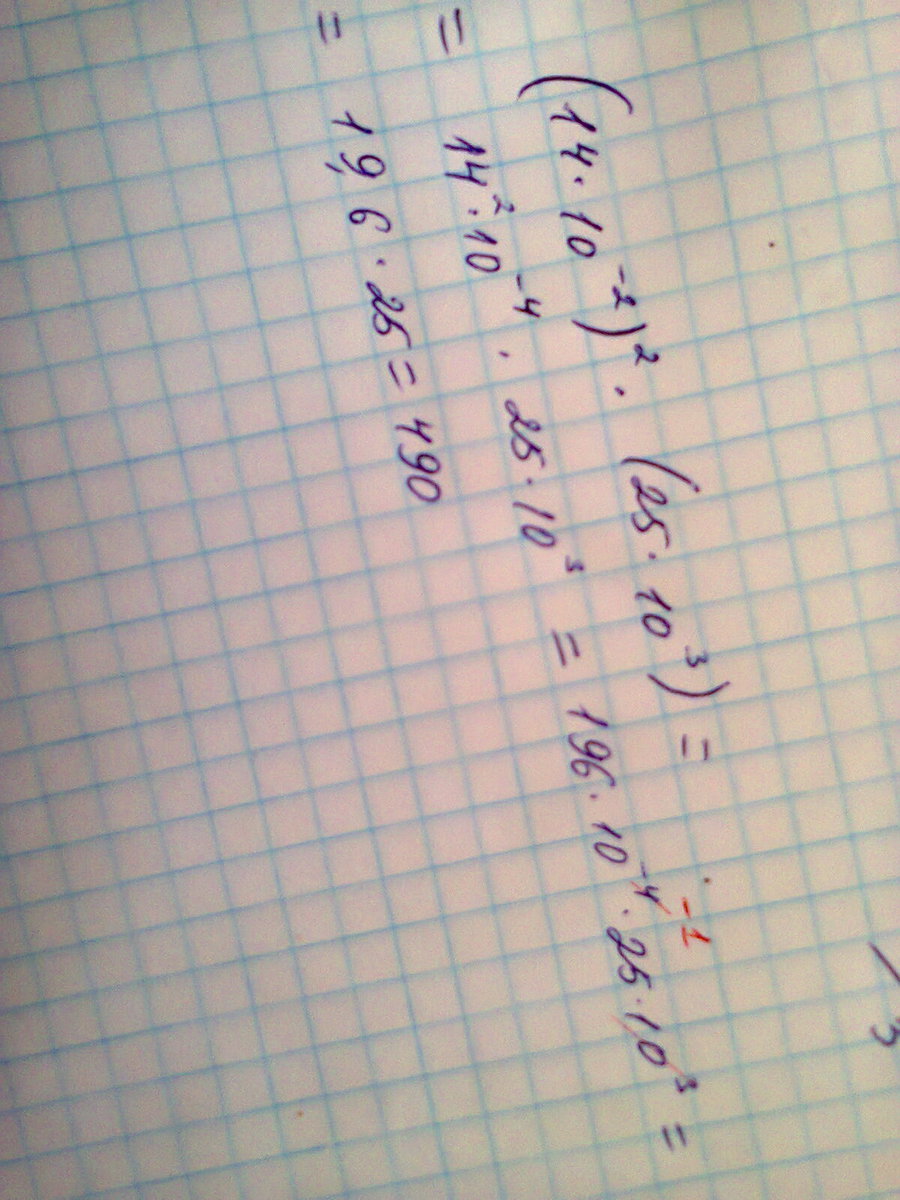 (14·10⁻²)²·(25·10³)=
=14²·10⁻⁴·25·10³=196·10⁻⁴·25·10³=
-1
=19,6·25=490
3